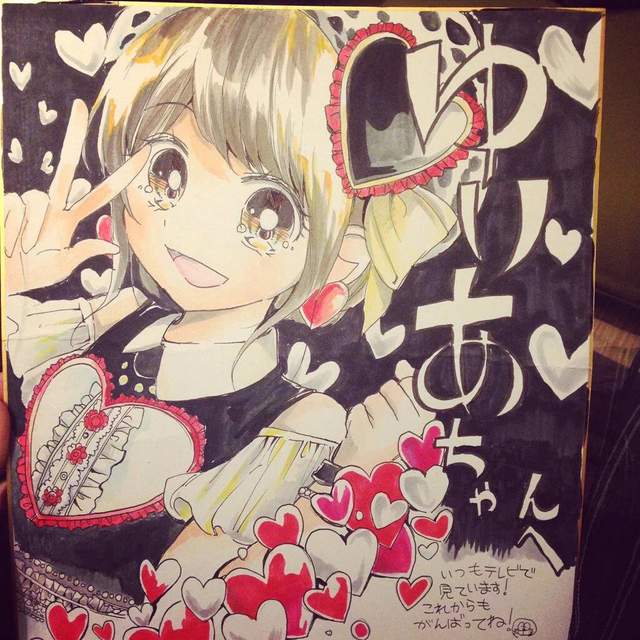 ゆりあちゃんへ
いつもテレビで
見ています!
これからも
がんばってね!